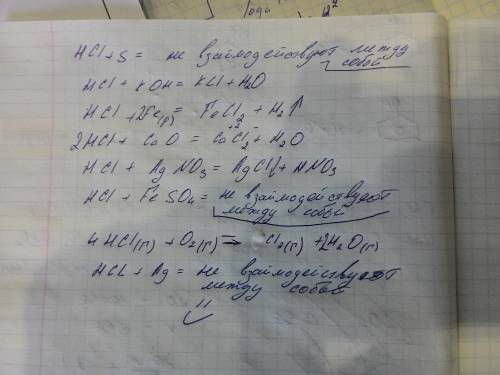 HCl + S = не взаймодействуют между
собой
HCl + KOH = KCl + H2O
HCl + 2Fe(р) = FeCl2 + H2↑
2HCl + CaO = CaCl2 + H2O
HCl + AgNO3 = AgCl↓ + HNO3
HCl + FeSO4 = не взаймодействуют
между собой
4HCl(г) + O2(г) = Cl2(г) + 2H2O(г)
HCl + Ag = не взаймодействуют
между собой